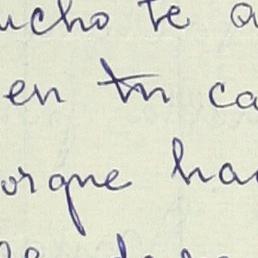 ucho te a
en tu ca
orque ha